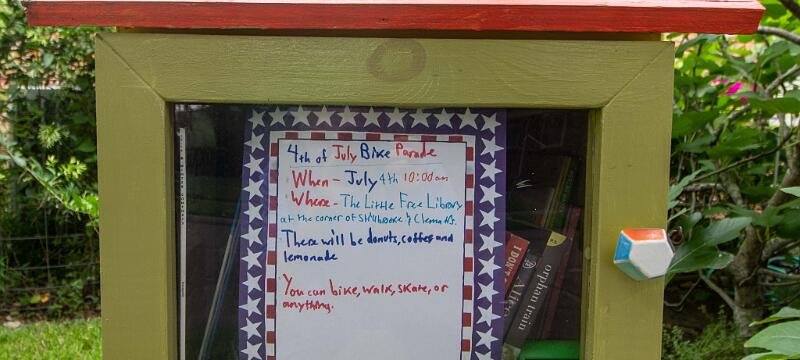 4th of July Bike Parade
When - July 4th 10:00am
Where - The Little Free Library
at the corner of &
There will be donuts, coffee and
lemonade
You can bike, walk, skate, or
anything.
I DON'T
orphan train